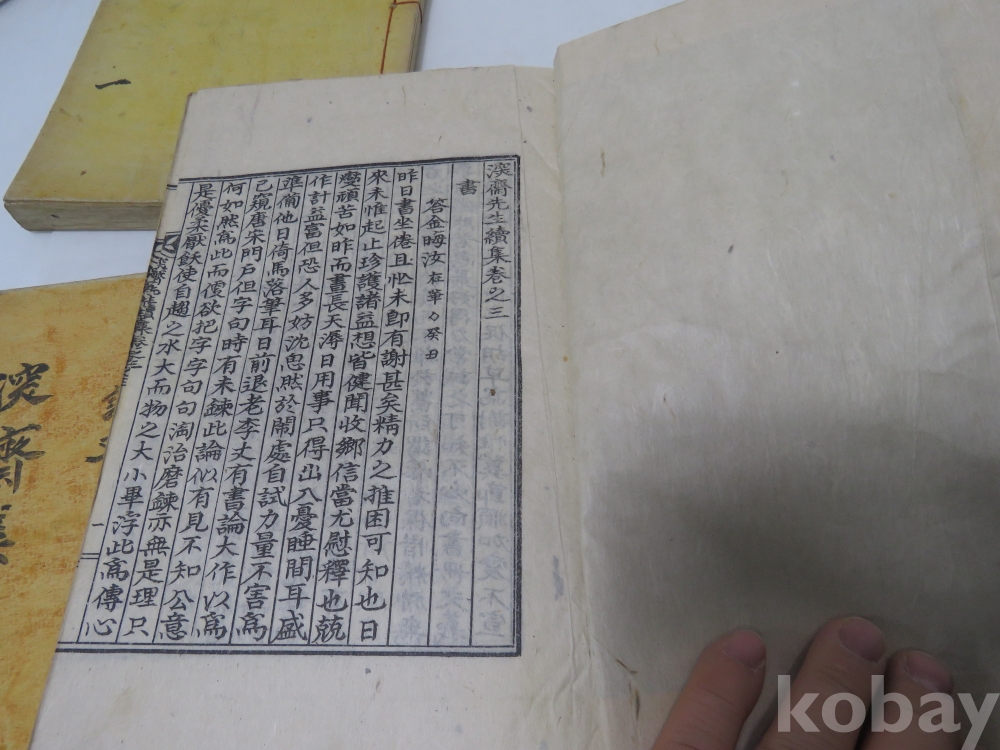 淡齋先生續集卷之三
書
答金晦汝在華〃癸丑
昨日書坐倦且忙未即有謝甚矣精力之摧困可知也日
來未惟起止珍護諸益想皆健聞收鄉信當尤慰釋也兢
燮頑苦如昨而晝長天溽日用事只得出入憂睡間耳盛
作計益富但恐人多妨沈思然於閙處自試力量不害爲
進備他日倚馬落筆耳日前退老李丈有書論大作以爲
已窺唐宋門戶但字句時有未鍊此論似有見不知公意
何如然爲此而便欲把字字句句淘治磨鍊亦無是理只
是優柔厭飫使自趨之水大而物之大小畢浮此爲傳心
一
一
kobay